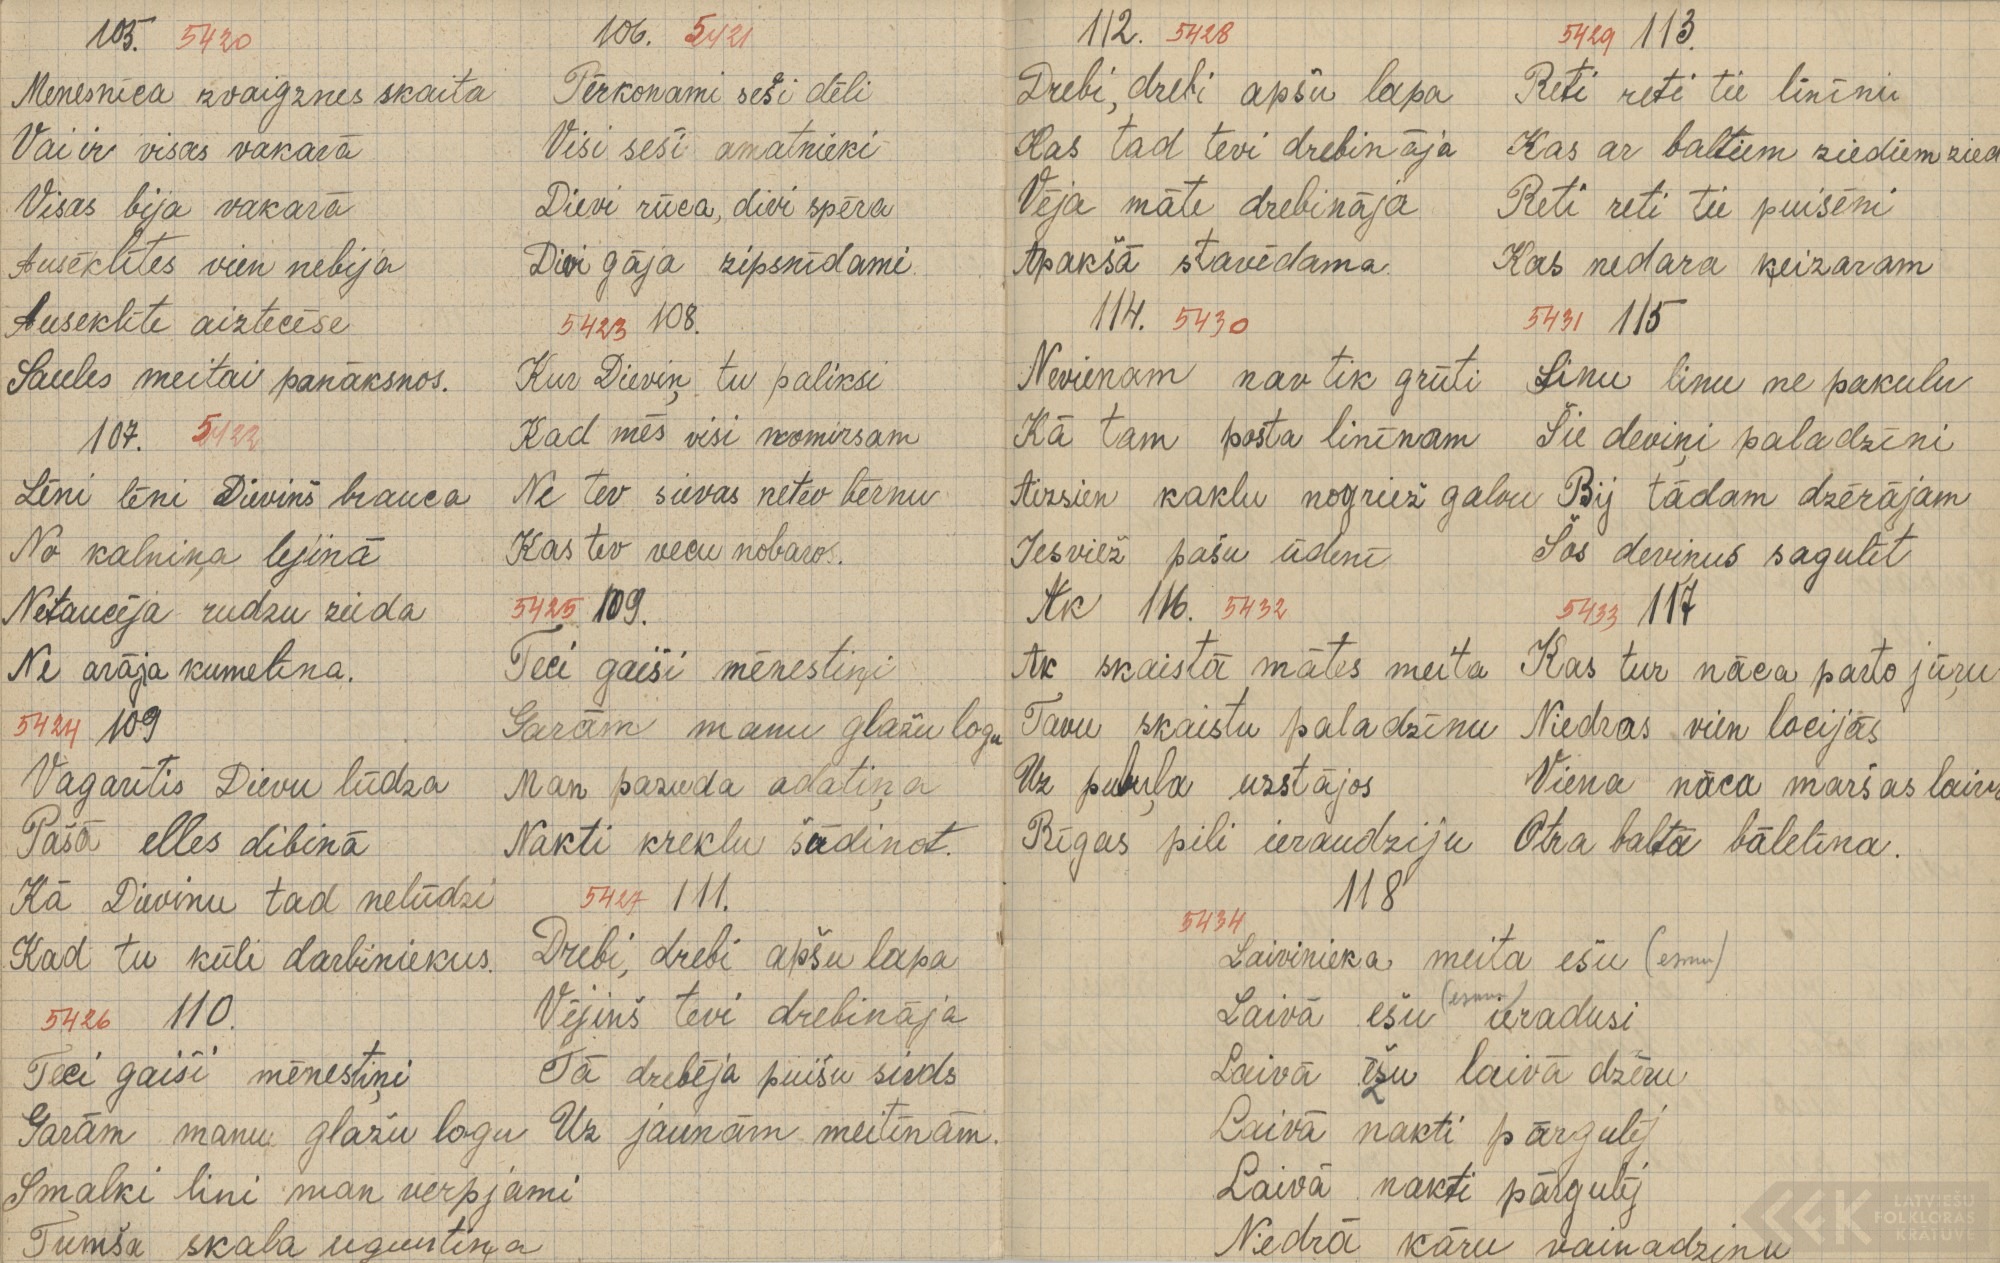 105. 5420
Menesnīca zvaigznes skaita
Vai ir visas vakarā
Visas bija vakarā
Ausēklītes vien nebija
Auseklīte aiztecēse
Saules meitai panāksnos.
107. 5422
Lēni lēni Dieviņš brauca
No kalniņa lejinā
Netaucēja rudzu zieda
Ne arāja kumelīna.
5424 109
Vagarītis Dievu lūdza
Pašā elles dibinā
Kā Dievinu tad nelūdzi
Kad tu kūli darbiniekus.
5426 110.
Teci gaiši mēnestiņi
Garām manu glažu logu
Smalki lini man verpjami
Tumša skala uguntiņa
106. 5421
Pērkonami seši dēli
Visi seši amatnieki
Dievi rūca, divi spēra
Divi gāja zipsnīdami
5423 108.
Kur Dieviņ tu paliksi
Kad mēs visi nomirsam
Ne tev sievas netev bērnu
Kas tev vecu nobaros.
5425 109.
Teci gaiši mēnestiņi
Garām manu glažu logu
Man pazuda adatiņa
Nakti kreklu šūdinot.
5427 111.
Drebi, drebi apšu lapa
Vējinš tevi drebināja
Tā drebēja puišu sirds
Uz jaunām meitinām.
112. 5428
Drebi, drebi apšu lapa
Kas tad tevi drebināja
Vēja māte drebināja
Apakšā stavēdama
114. 5430
Nevienam nav tik grūti
Kā tam posta linīnam
Aizsien kaklu nogriež galvu
Iesviež pašu ūdenī
Ak 116. 5432
Ak skaistā mātes meita
Tavu skaistu paladzīnu
Uz puķuļa uzstājos
Rīgas pili ieraudziju
5429 113.
Reti reti tie linīni
Kas ar baltiem ziediem zied
Reti reti tie puisēni
Kas nedara ķeizaram
5431 115
Linu linu ne pakulu
Šie deviņi paladzīni
Bij tādam dzērājam
Šos devinus sagulēt
5433 117
Kas tur nāca parto jūŗu
Niedras vien locijās
Viena nāca maršas laiva
Otra baltā bālelīna.
118
5434
Laivinieka meita ešu (esmu)
Laivā ešu (esmu) ieradusi
Laivā ēšu laivā dzēru
Laivā nakti pārgulēj
Laivā nakti pārgulēj
Niedrā kāru vainadzinu
LATVIEŠU
FOLKLORAS
KRĀTUVE